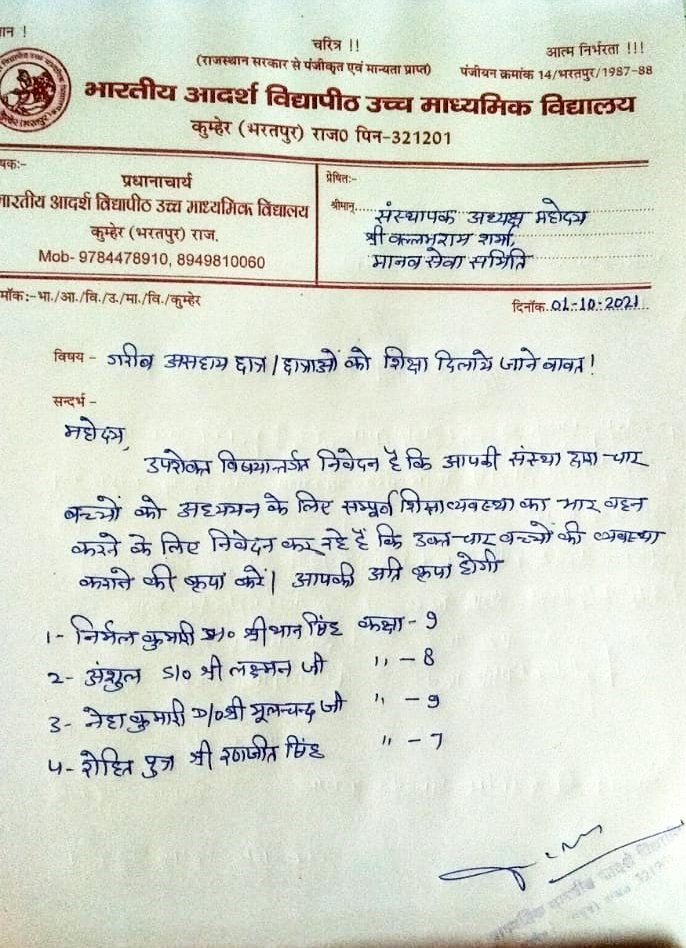 ान !
चरित्र !!
आत्म निर्भरता !!!
(राजस्थान सरकार से पंजीकृत एवं मान्यता प्राप्त)
पंजीयन क्रमांक 14/भरतपुर/1987-88
भारतीय आदर्श विद्यापीठ उच्च माध्यमिक विद्यालय
कुम्हेर (भरतपुर) राज0 पिन-321201
षक:-
प्रधानाचार्य
भारतीय आदर्श विद्यापीठ उच्च माध्यमिक विद्यालय
कुम्हेर (भरतपुर) राज.
Mob- 9784478910, 8949810060
प्रेषित:-
श्रीमान्..... संस्थापक अध्यक्ष महोदय
श्री वल्लभराम शर्मा,
मानव सेवा समिति
माँक:-भा./आ./वि./उ./मा./वि./कुम्हेर
दिनाँक. 01-10-2021
विषय - गरीब असहाय छात्र / छात्राओं को शिक्षा दिलाये जाने बावत !
सन्दर्भ -
महोदय,
उपरोक्त विषयान्तर्गत निवेदन है कि आपकी संस्था द्वारा चार
बच्चों को अध्ययन के लिए सम्पूर्ण शिक्षा व्यवस्था का भार वहन
करने के लिए निवेदन कर रहे हैं कि उक्त चार बच्चों की व्यवस्था
कराने की कृपा करें | आपकी अति कृपा होगी
1- निर्मल कुमारी D/o श्री थान सिंह कक्षा - 9
2- अंशुल S/o श्री लक्ष्मन जी " - 8
3- नेहा कुमारी D/o श्री मूलचन्द जी " - 9
4- रोहित पुत्र श्री रणजीत सिंह " - 7